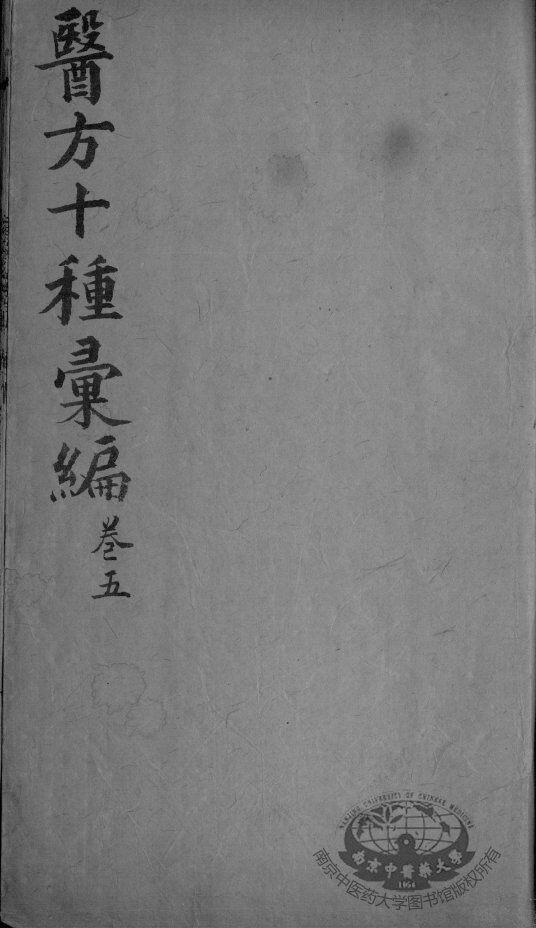 醫方十種彙編
卷五
NANJING UNIVERSITY OF CHINESE MEDICINE
南京中醫藥大學
1954
南京中医药大学图书馆版权所有